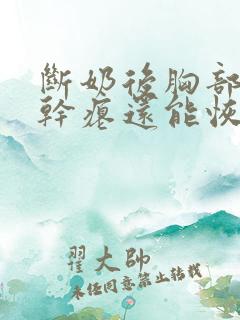 斷奶後胸部
幹癟還能恢
翟大帥
未任同意禁止转载